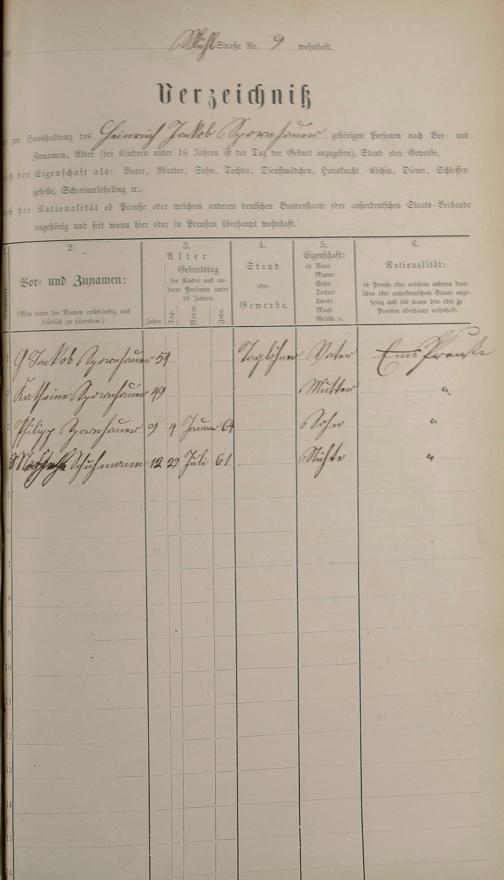 Mühl Straße Nr. 9 wohnhaft.
Verzeichniß
zur Haushaltung des Heinrich Jakob Spornhauer gehörigen Personen nach Vor- und
Zunamen, Alter (bei Kindern unter 16 Jahren ist der Tag der Geburt anzugeben), Stand oder Gewerbe,
nach der Eigenschaft als: Vater, Mutter, Sohn, Tochter, Dienstmädchen, Hausknecht, Köchin, Diener, Schlosser-
geselle, Schreinerlehrling ꝛc.,
nach der Nationalität ob Preuße oder welchem anderen deutschen Bundesstaate oder außerdeutschen Staats-Verbande
angehörig und seit wann hier oder in Preußen überhaupt wohnhaft.
2. 3. 4. 5. 6.
Vor- und Zunamen:
(Man wolle die Namen vollständig und leserlich zu schreiben.)
Alter
Geburtstag
der Kinder und anderer Personen unter 16 Jahren.
Jahre Tag. Monat. Jahr.
Stand
oder
Gewerbe.
Eigenschaft:
ob Vater
Mutter
Sohn
Tochter
Knecht
Magd
Geselle ꝛc.
Nationalität:
ob Preuße oder welchem anderen deutschen oder außerdeutschen Staate angehörig und seit wann hier oder in Preußen überhaupt wohnhaft.
Jakob Spornhauer 54 Taglöhner Vater Ems Preuße
Katharine Spornhauer 49 Mutter "
Philipp Spornhauer 9 4 Januar 64 Sohn "
Schuhmann 12 29 Juli 61 Nichte "